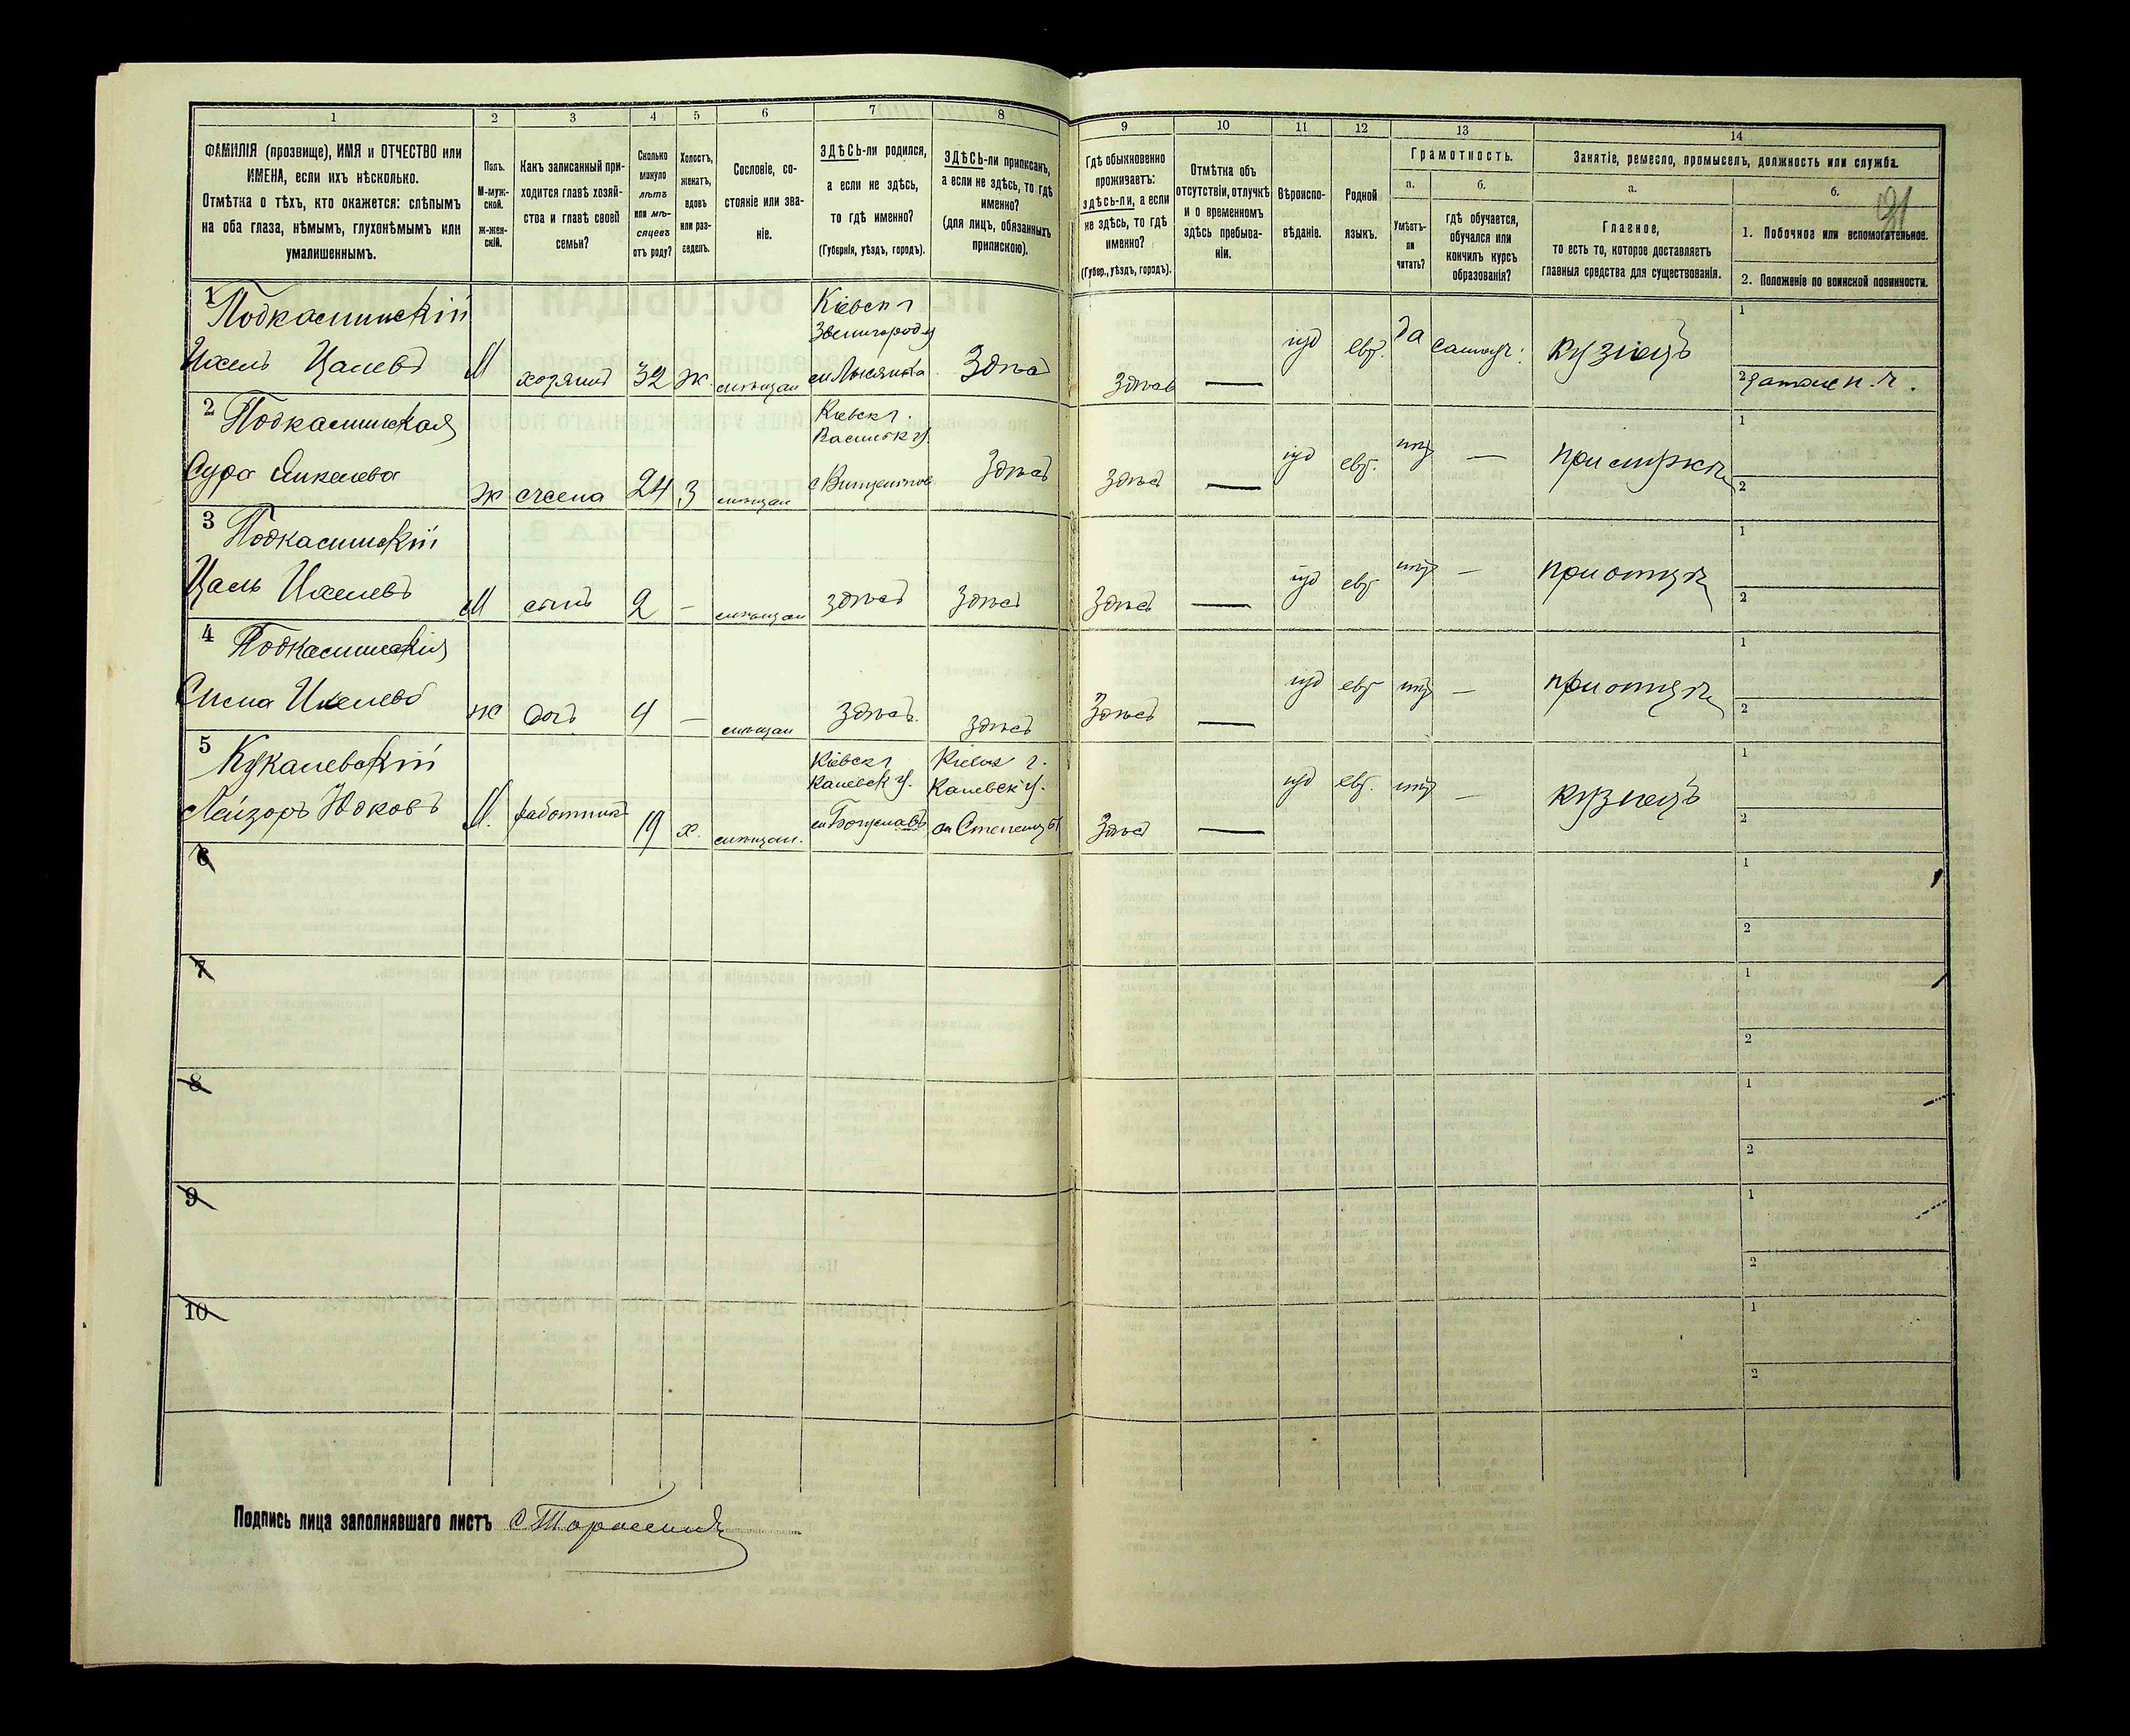 1 2 3 4 5 6 7 8 9 10 11 12 13 14
ФАМИЛІЯ (прозвище), ИМЯ и ОТЧЕСТВО или
ИМЕНА, если ихъ нѣсколько.
Отмѣтка о тѣхъ, кто окажется: слѣпымъ
на оба глаза, нѣмымъ, глухонѣмымъ или
умалишеннымъ.
Полъ.
М-муж-
ской.
Ж-жен-
скій.
Какъ записанный при-
ходится главѣ хозяй-
ства и главѣ своей
семьи?
Сколько
минуло
лѣтъ
или мѣ-
сяцевъ
отъ роду?
Холостъ,
женатъ,
вдовъ
или раз-
веденъ.
Сословіе, со-
стояніе или зва-
ніе.
ЗДѢСЬ-ли родился,
а если не здѣсь,
то гдѣ именно?
(Губернія, уѣздъ, городъ).
ЗДѢСЬ-ли приписанъ,
а если не здѣсь, то гдѣ
именно?
(для лицъ, обязанныхъ
припискою).
Гдѣ обыкновенно
проживаетъ:
здѣсь-ли, а если
не здѣсь, то гдѣ
именно?
(Губер., уѣздъ, городъ).
Отмѣтка объ
отсутствіи, отлучкѣ
и о временномъ
здѣсь пребыва-
ніи.
Вѣроиспо-
вѣданіе.
Родной
языкъ.
Грамотность.
а.
Умѣетъ-
ли
читать?
б.
гдѣ обучается,
обучался или
кончилъ курсъ
образованія?
Занятіе, ремесло, промыселъ, должность или служба.
а.
Главное,
то есть то, которое доставляетъ
главныя средства для существованія.
б.
91
1. Побочное или вспомогательное.
2. Положеніе по воинской повинности.
1 Подкаминскій Кіевск г
Звенигород у
Ихель Цалевъ М хозяинъ 32 ж. мѣщан м Лысянка Здѣсь Здѣсь — іуд евр. да самоуч: кузнецъ
1
2
2 Подкаминская Кіевск г.
Васильк у.
Сура Янкелева ж жена 24 З мѣщан Здѣсь Здѣсь — іуд евр. нѣт —
1
2
3 Подкаминскій
Цаль Ихелевъ М сынъ 2 — мѣщан здѣсь Здѣсь Здѣсь — іуд евр нѣт — при отцѣ
1
2
4 Подкаминская
Ихелева ж дочь 4 — мѣщан Здѣсь. Здѣсь Здѣсь — іуд евр нѣт — при отцѣ
1
2
5 Кіевск г Кіевск г.
Каневск у. Каневск у.
Лейзоръ Юдковъ М. работникъ 19 х. мѣщан. м Богуславъ м Степанцы Здѣсь — іуд евр. нѣт — кузнецъ
1
2
6
1
2
7
1
2
8
1
2
9
1
2
10
1
2
Подпись лица заполнявшаго листъ